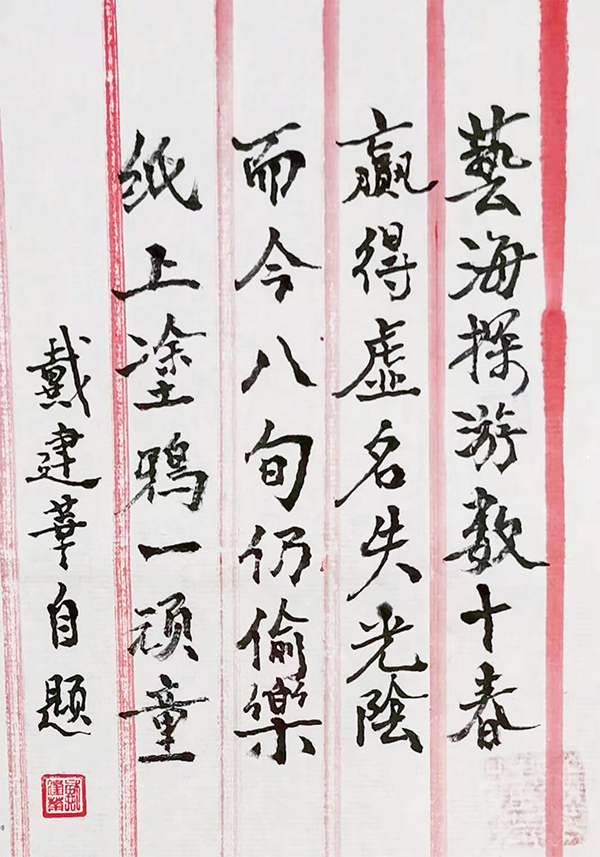 藝海探游数十春
赢得虚名失光陰
而今八旬仍偷樂
纸上塗鸦一顽童
戴建華自题